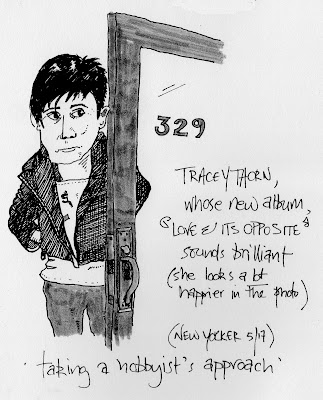 329
TRACEY THORN,
whose new album,
"LOVE & ITS OPPOSITE"
sounds brilliant
(she looks a lot
happier in The photo)
(NEW YORKER 5/17)
'taking a hobbyist's approach'